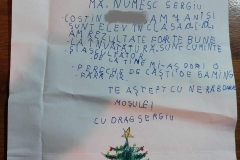 MĂ, NUMESC SERGIU
COSTIN AM ANI SI
SUNT ELEV IN CLASA
AM REZULTATE FOARTE BUNE
LA INVATATURA. SUNT CUMINTE
SI ASCULTATOR
DE LA TINE MI-AS DORI O
PERECHE DE CASTI DE GAMING
FARA
TE ASTEPT CU NERABDARE
MOSULE!
CU DRAG SERGIU